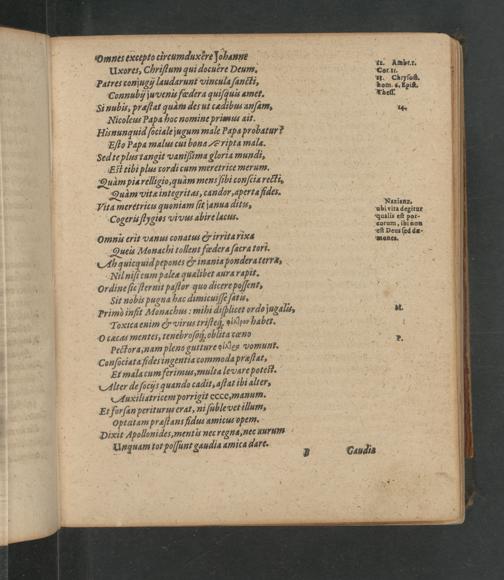 Omnes excepto circumduxêre Johanne
Uxores, Christum qui docuêre Deum,
Patres conjugij laudarunt vincula sancti,
Connubij juvenis fœdera quisquis amet.
Si nubis, præstat quàm des ut cædibus ansam,
Nicoleus Papa hoc nomine primus ait.
His nunquid sociale jugum male Papa probatur?
Esto Papa malus cui bona scripta mala.
Sed te plus tangit vanissima gloria mundi,
Est tibi plus cordi cum meretrice merum.
Quàm pia relligio, quàm mens sibi conscia recti,
Quàm vitæ integritas, candor, aperta fides.
Vita meretricis quoniam sit janua ditu,
Cogeris stygios vivus abire lacus.
Omnis erit vanus conatus & irrita rixa
Queis Monachi tollent fœdera sacra tori.
Ah quicquid pepones & inania pondera terræ,
Nil nisi cum paleæ qualibet aura rapit.
Ordine sic sternit pastor quo dicere possent,
Sit nobis pugna hac dimicuisse satu,
Primò insit Monachus: mihi displicet ordo jugalis,
Toxica enim & virus tristeq́; habet.
O cæcas mentes, tenebrosoq́; oblita cœno
Pectora, nam pleno gutture vomunt.
Consociata fides ingentia commoda præstat,
Et mala cum ferimus, multa levare potest.
Alter de socijs quando cadit, astat ibi alter,
Auxiliatricem porrigit ecce, manum.
Et forsan periturus erat, ni sublevet illum,
Optatam præstans fidus amicus opem.
Dixit Apollonides, mentis nec regna, nec aurum
Unquam tot possunt gaudia amica dare.
B Gaudia
12. Ambr. 2.
Cor. 11.
13. Chrysost.
hom. 2. Epist.
Thess.
14.
Nazianz.
ubi vita degitur
qualis est por-
corum, ibi non
est Deus sed dæ-
mones.
M.
P.